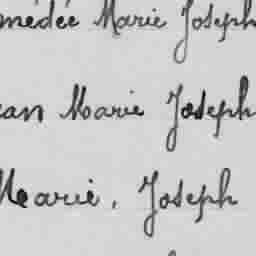 médée Marie Joseph
ean Marie Joseph
Marie, Joseph